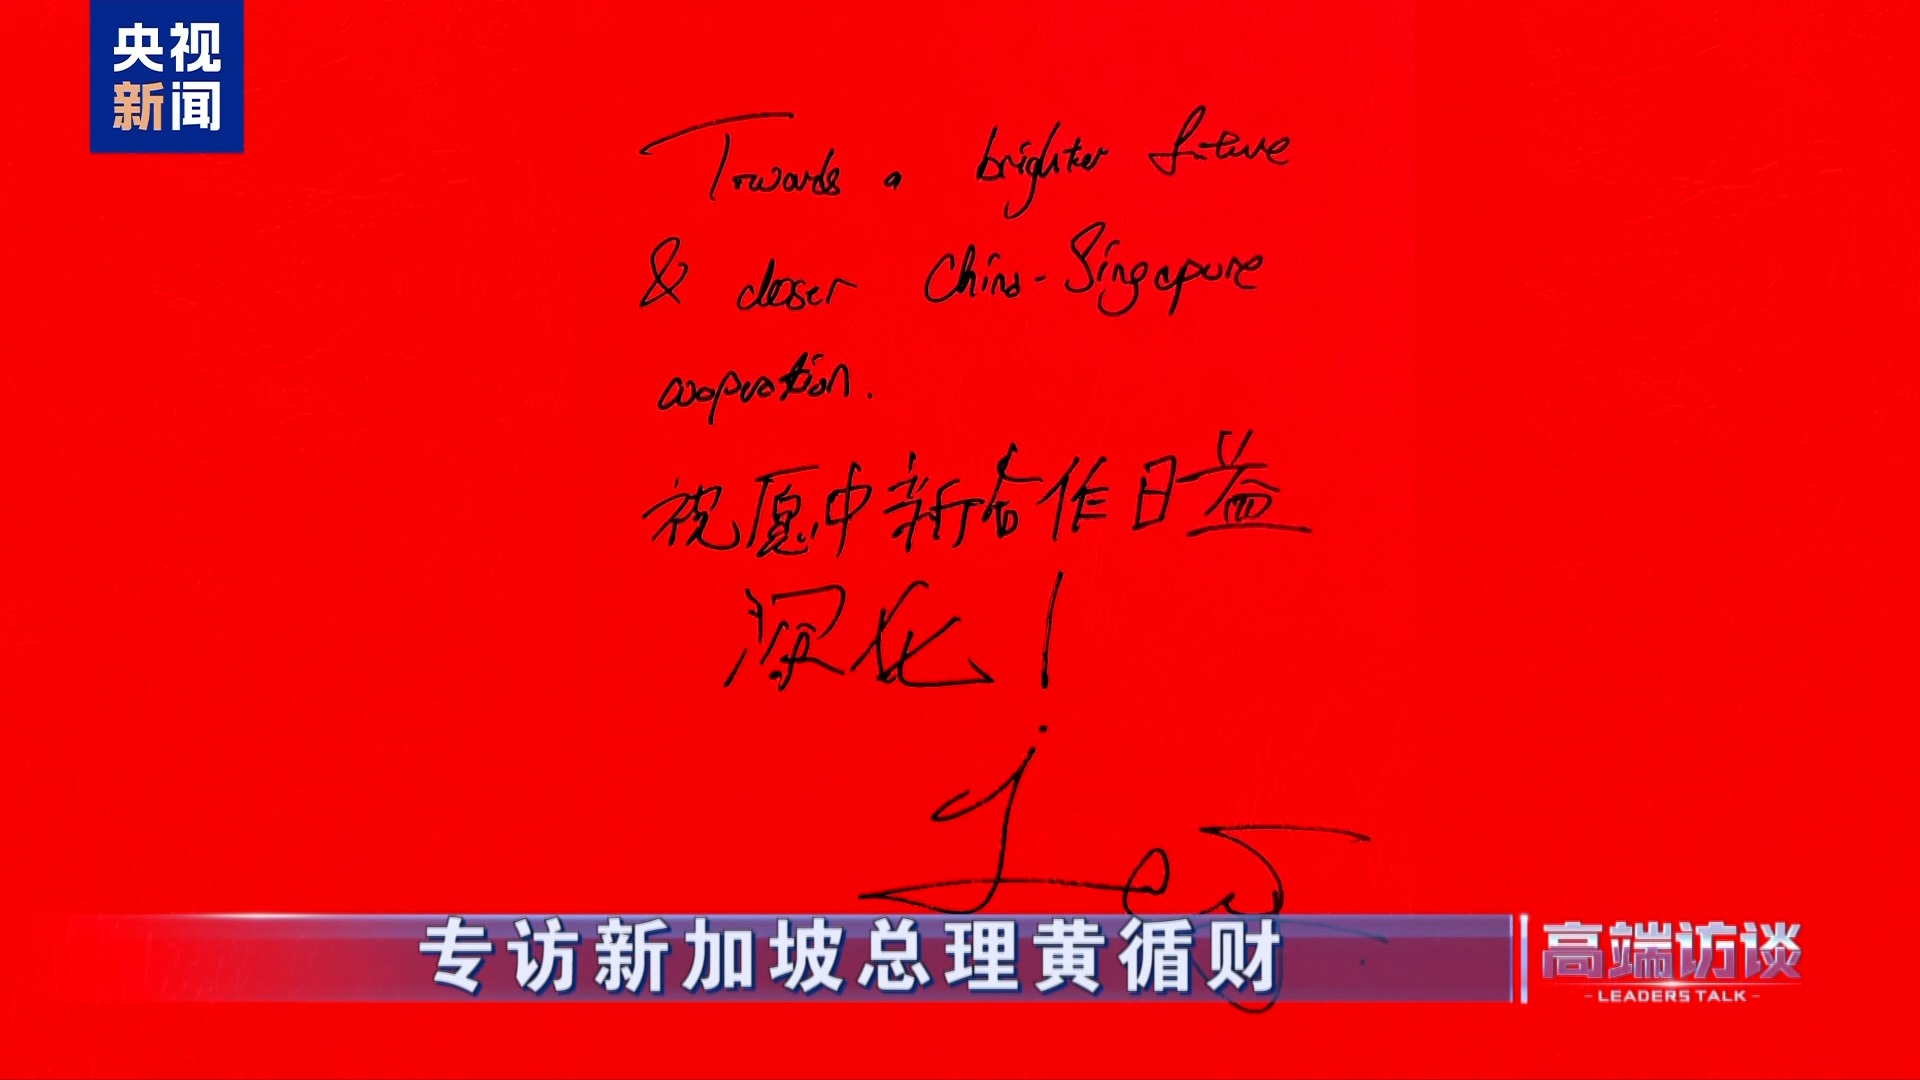 央视
新闻
Towards a brighter future
& closer China-Singapore
cooperation.
祝愿中新合作日益
深化！
专访新加坡总理黄循财
高端访谈
- LEADERS TALK -